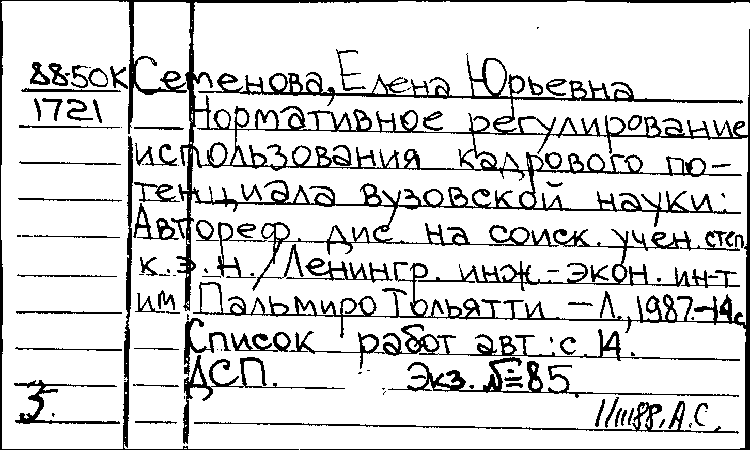 88-50К Семенова, Елена Юрьевна
1721 Нормативное регулирование
использования кадрового по-
тенциала вузовской науки:
Автореф. дис. на соиск. учен. степ.
к.э.н. / Ленингр. инж.-экон. ин-т
им Пальмиро Тольятти. – Л., 1987.–14с
Список работ авт.: с 14.
ДСП. Экз. № 85.
5. 11/III88, А.С.